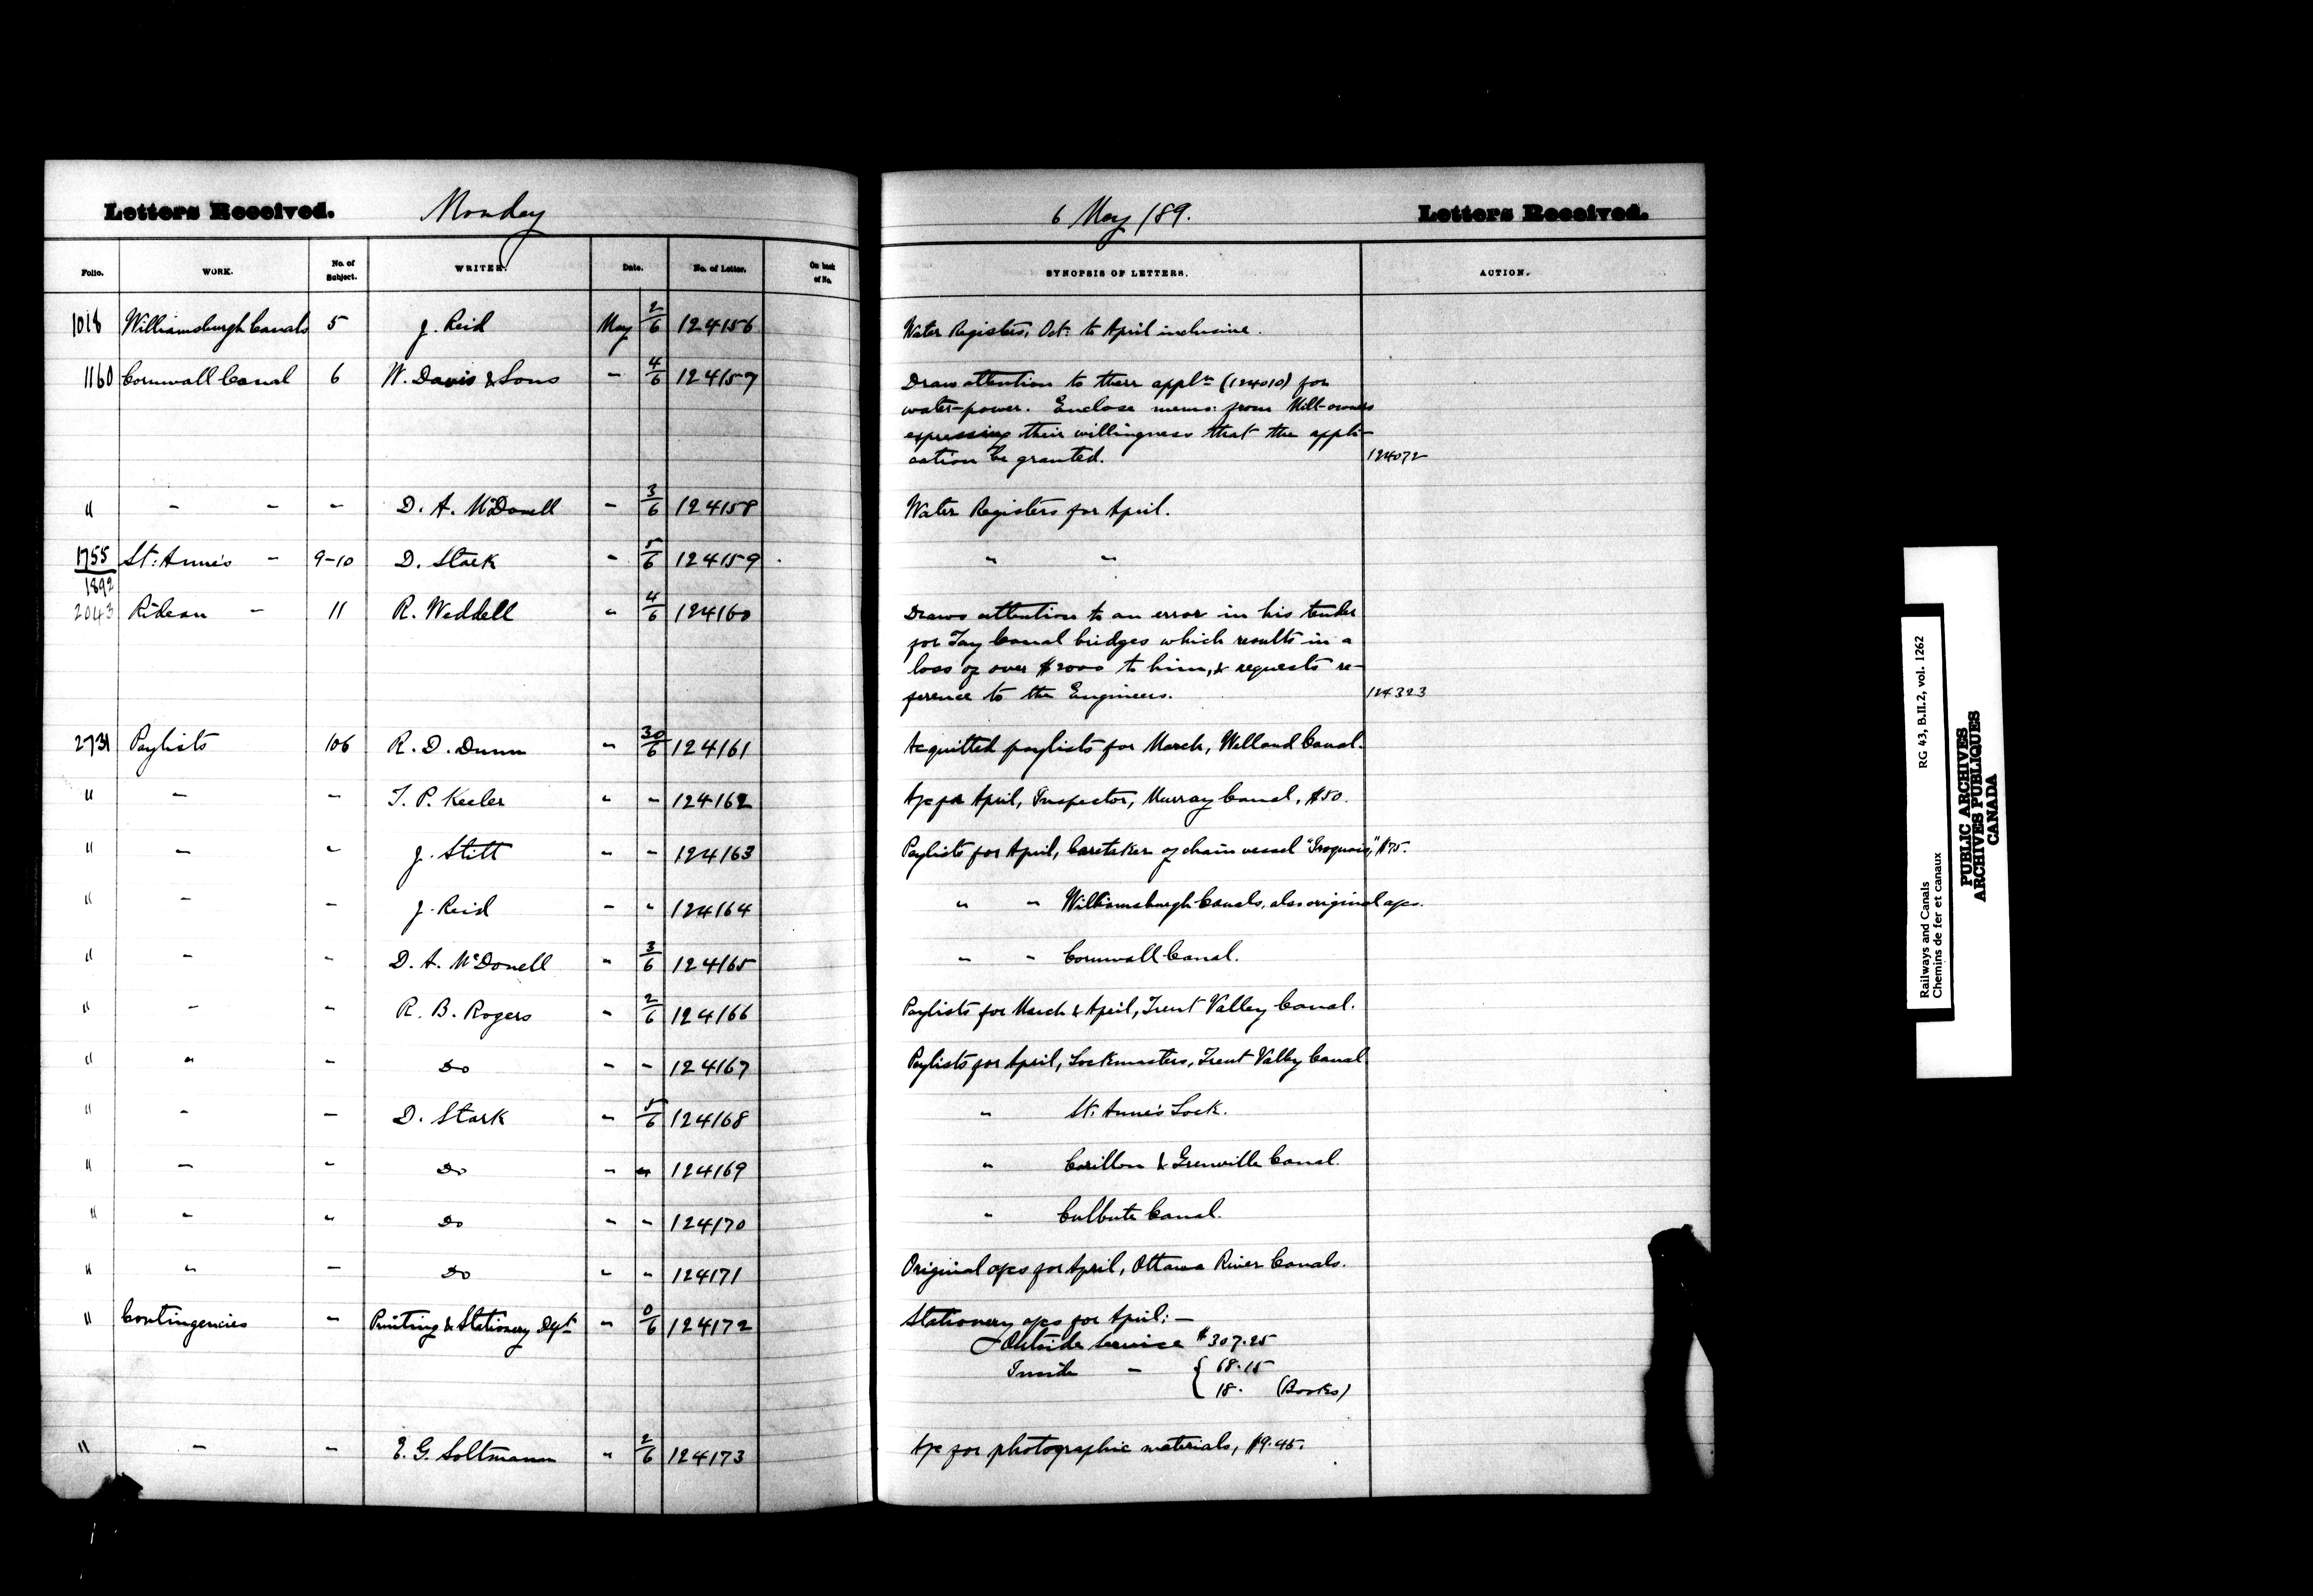 Letters Received. Monday
6 May /89. Letters Received.
Folio. WORK. No. of Subject. WRITER. Date. No. of Letter. On back of No.
SYNOPSIS OF LETTERS. ACTION.
1018 Williamsburgh Canals 5 J. Reid May 2/6 124156 Water Registers, Oct: to April inclusive.
1160 Cornwall Canal 6 W. Davis & Sons " 4/6 124157 Draw attention to their appln (124010) for
water-power. Enclose memo: from Mill-owners
expressing their willingness that the appli-
cation be granted. 124072
" " " " D. A. McDonell " 3/6 124158 Water Registers for April.
1755/1892 St: Anne's " 9-10 D. Stark " 5/6 124159 " "
2043 Rideau " 11 R. Weddell " 4/6 124160 Draws attention to an error in his tender
for Tay Canal bridges which results in a
loss of over $2000 to him, & requests re-
ference to the Engineers. 124323
2731 Paylists 106 R. D. Dunn " 30/6 124161 Acquitted paylists for March, Welland Canal.
" " " T. P. Keeler " " 124162 A/c for April, Inspector, Murray Canal, $50.
" " " J. Stitt " " 124163 Paylists for April, Caretaker of chain vessel "Iroquois," $75.
" " " J. Reid " " 124164 " " Williamsburgh Canals, also original a/cs.
" " " D. A. McDonell " 3/6 124165 " " Cornwall Canal.
" " " R. B. Rogers " 2/6 124166 Paylists for March & April, Trent Valley Canal.
" " " Do " " 124167 Paylists for April, Lockmasters, Trent Valley Canal
" " " D. Stark " 5/6 124168 " St. Anne's Lock.
" " " Do " " 124169 " Carillon & Grenville Canal.
" " " Do " " 124170 " Culbute Canal.
" " " Do " " 124171 Original a/cs for April, Ottawa River Canals.
" Contingencies " Printing & Stationery Dept " 0/6 124172 Stationery a/cs for April: —
Outside Service $307.25
Inside " { 68.15
18. (Books)
" " " E. G. Soltmann " 2/6 124173 A/c for photographic materials, $9.45.
Railways and Canals RG 43, B.II.2, vol. 1262
Chemins de fer et canaux
PUBLIC ARCHIVES
ARCHIVES PUBLIQUES
CANADA